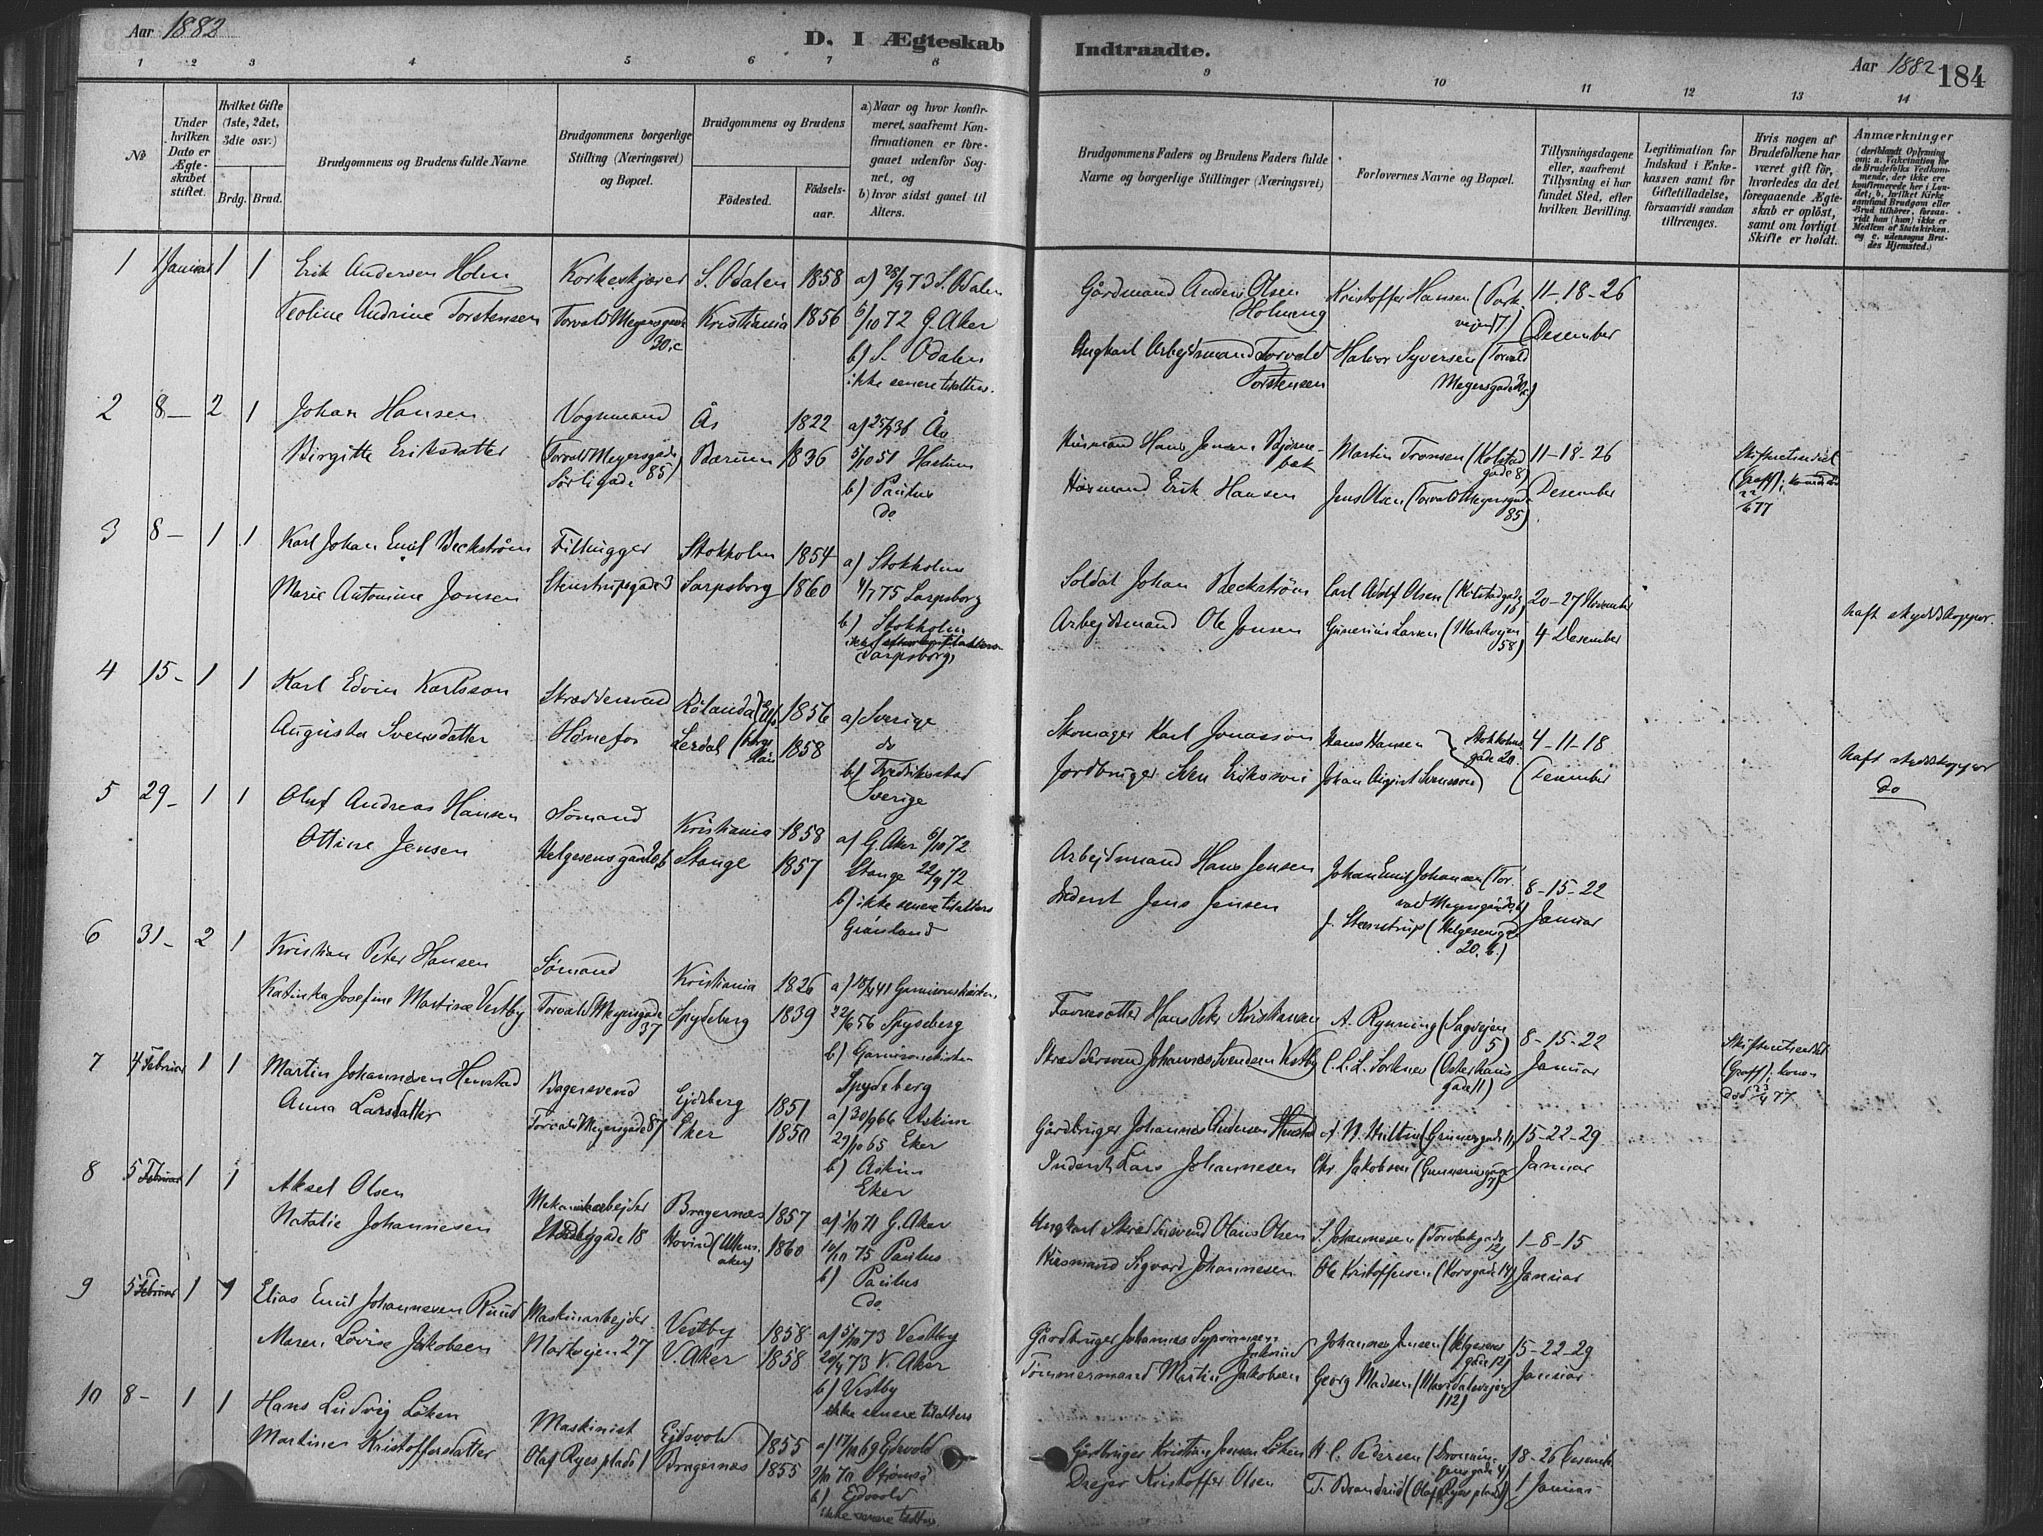 Aar 1882
D. I Ægteskab Indtraadte.
Aar 1882 184
1 2 3 4 5 6 7 8 9 10 11 12 13 14
№
Under hvilken Dato er Ægteskabet stiftet.
Hvilket Gifte (1ste, 2det, 3die osv.)
Brdg. Brud.
Brudgommens og Brudens fulde Navne
Brudgommens borgerlige Stilling (Næringsvei) og Bopæl.
Brudgommens og Brudens
Födested.
Födselsaar.
a) Naar og hvor konfirmeret, saafremt Konfirmationen er foregaaet udenfor Sognet, og
b) hvor sidst gaaet til Alters.
Brudgommens Faders og Brudens Faders fulde Navne og borgerlige Stillinger (Næringsvei)
Forlovernes Navne og Bopæl.
Tillysningsdagene eller, saafremt Tillysning ei har fundet Sted, efter hvilken Bevilling.
Legitimation for Indskud i Enkekassen samt for Giftetilladelse, forsaavidt saadan tiltrænges.
Hvis nogen af Brudefolkene har været gift för, hvorledes da det foregaaende Ægteskab er oplöst, samt om lovligt Skifte er holdt.
Anmærkninger
1 1 Januar 1 1 Erik Andersen Holm Korkeskjærer S. Odalen 1858 a) 28/9 73 S. Odalen
Teoline Andrine Torstensen Torvald Meyersgade 30.c Kristiania 1856 6/10 72 G. Aker
b) S. Odalen
ikke senere tilalters.
Gårdmand Anders Olsen Holmeng Kristoffer Hansen (Parkvejen 17) 11-18-26
Ungkarl Arbejdsmand Torvald Torstensen Halvor Syversen (Torvald Meyersgade 30c) Desember
2 8 – 2 1 Johan Hansen Vognmand Ås 1822 a) 25/9 36 Ås
Birgitte Eriksdatter (Torvald Meyersgade 85) Sørligade Bærum 1836 5/10 51 Haslum
b) Paulus
do.
Husmand Hans Jensen Bjørnebæk Martin Tronsen (Kolstadgade 8) 11-18-26
Husmand Erik Hansen Jens Olsen (Torvald Meyersgade 85) Desember
3 8 – 1 1 Karl Johan Emil Beckstrøm Filhugger Stokholm 1854 a) Stokholm
Marie Antonine Jonsen Stenstrupsgade 3 Sarpsborg 1860 4/7 75 Sarpsborg
b) Stokholm
Sarpsborg
Soldat Johan Beckstrøm Carl Adolf Olsen (Kolstadgade 16) 20-27 November
Arbejdsmand Ole Jonsen Gunerius Larsen (Markvejen 58) 4 Desember
haft skyddskoppor.
4 15 – 1 1 Karl Edvin Karlsson Skræddersvend Rølanda (Elfsborgs Län) 1856 a) Sverige
Augusta Svensdatter Hønefos Lerdal 1858 do
b) Fredrikstad
Sverige
Skomager Karl Jonasson Hans Hansen 4-11-18
Jordbruger Sven Eriksson Johan August Svensson Stokholmsgade 20 Desember
haft skyddskoppor
do
5 29 – 1 1 Oluf Andreas Hansen Sømand Kristiania 1858 a) G. Aker 6/10 72
Ottine Jensen Helgesensgade 20.b Stange 1857 Stange 22/9 72
b) ikke senere tilalters
Grønland
Arbejdsmand Hans Jensen Johan Emil Johansen (Torvald Meyersgade) 8-15-22
Inderst Jens Jensen J. Steenstrup (Helgesensgade 20.b.) Januar
6 31 – 2 1 Kristian Peter Hansen Sømand Kristiania 1826 a) 18/4 41 Garnisonskirken
Katinka Josefine Martine Vestby Torvald Meyersgade 37 Spydeberg 1839 22/6 56 Spydeberg
b) Garnisonskirken
Spydeberg
Favnesætter Hans Peter Kristiansen A. Rynning (Sagvejen 5) 8-15-22
Skræddersvend Johannes Svendsen Vestby C.L.L. Sørknes (Osterhausgade 11) Januar
Skifteretsseddel (Graff); konen død 23/4 77
7 4 Februar 1 1 Martin Johannesen Hemstad Bagersvend Eidsberg 1851 a) 30/9 66 Askim
Anna Larsdatter Torvald Meyersgade 87 Eker 1850 29/10 65 Eker
b) Askim
Eker
Gårdbruger Johannes Andersen Hemstad A. N. Hulten (Grünersgade 11) 15-22-29
Inderst Lars Johannesen Chr. Jakobsen Januar
8 5 Februar 1 1 Aksel Olsen Mekanikarbejder Bragernæs 1857 a) 1/10 71 G. Aker
Natalie Johannesen 18 Hovind (Ullensaker) 1860 10/10 75 Paulus
b) Paulus
do.
Ungkarl Skræddersvend Olaus Olsen S. Johannesen 1-8-15
Husmand Sigvard Johannesen Ole Kristoffersen (Korsgade 14) Januar
9 5 Februar 1 1 Elias Emil Johannesen Ruud Maskinarbejder Vestby 1858 a) 5/10 73 Vestby
Maren Lovise Jakobsen Markvejen 27 V. Aker 1858 29/9 73 V. Aker
b) Vestby
ikke senere tilalters
Gårdbruger Johannes Syprianesen Johannes Jensen (Helgesensgade 12) 15-22-29
Tømmermand Martin Jakobsen Georg Madsen (Maridalsvejen 112) Januar
10 8 – 1 1 Hans Ludvig Løken Maskinist Eidsvold 1855 a) 17/10 69 Eidsvold
Martine Kristoffersdatter Olaf Ryes plads 1 Bragernæs 1855 2/10 70 Strømsø
b) Eidsvold
ikke senere tilalters.
Gårdbruger Kristian Jensen Løken H. C. Pedersen (Dronningensgade 4) 18-26 Desember
Drejer Kristoffer Olsen T. Brandrud (Olaf Ryes plads 1) 1 Januar